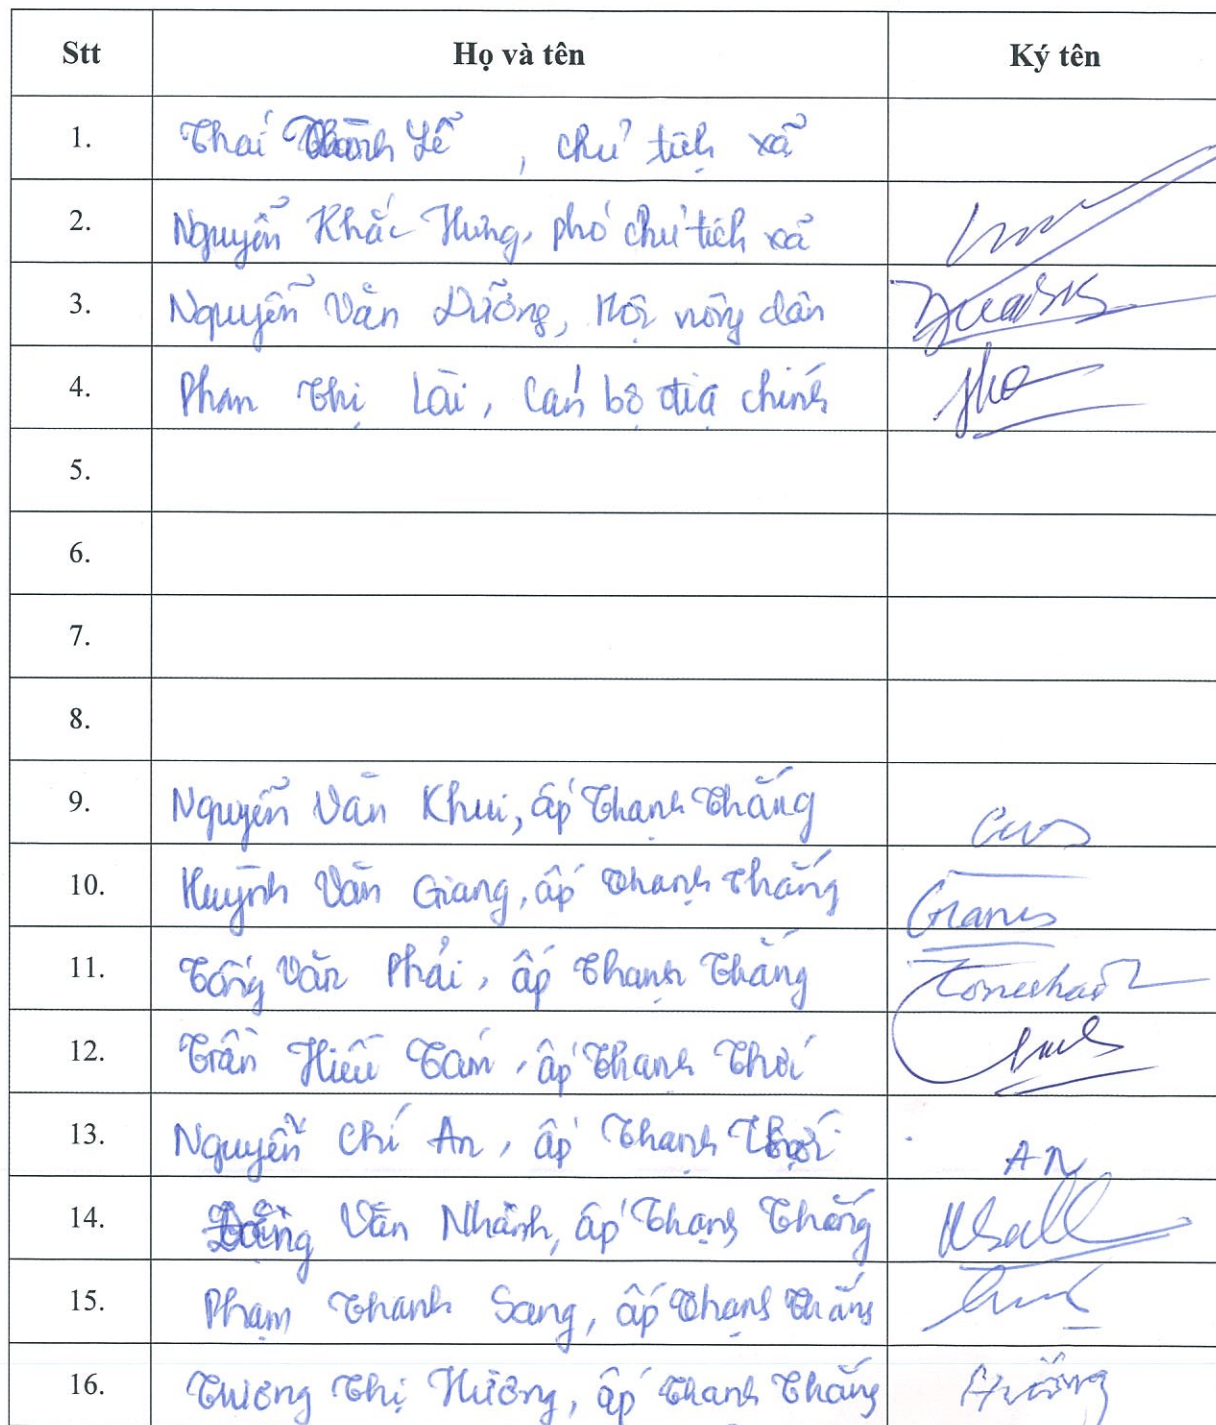 Stt Họ và tên Ký tên
1. Thái Thành Lể, chủ tịch xã
2. Nguyễn Khắc Hưng, phó chủ tịch xã
3. Nguyễn Văn Dưỡng, Hội nông dân
4. Phan Thị Lài, Cán bộ địa chính
5.
6.
7.
8.
9. Nguyễn Văn Khui, ấp Thạnh Thắng
10. Huỳnh Văn Giang, ấp Thạnh Thắng Giang
11. Tống Văn Phải, ấp Thạnh Thắng
12. Trần Hiếu Tám, ấp Thạnh Thới
13. Nguyễn Chí An, ấp Thạnh Thới AN
14. Văn Nhành, ấp Thạnh Thắng
15. Phạm Thanh Sang, ấp Thạnh Thắng
16. Trương Thị Hường, ấp Thạnh Thắng Hường